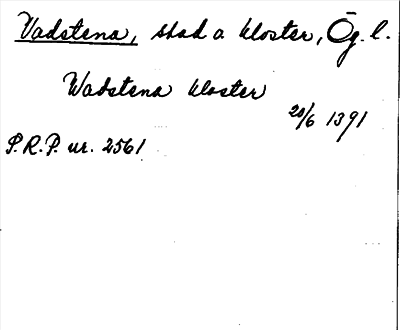 Vadstena, stad o kloster, Ög. l.
Wadstena kloster
20/6 1391
S.R.P. nr. 2561